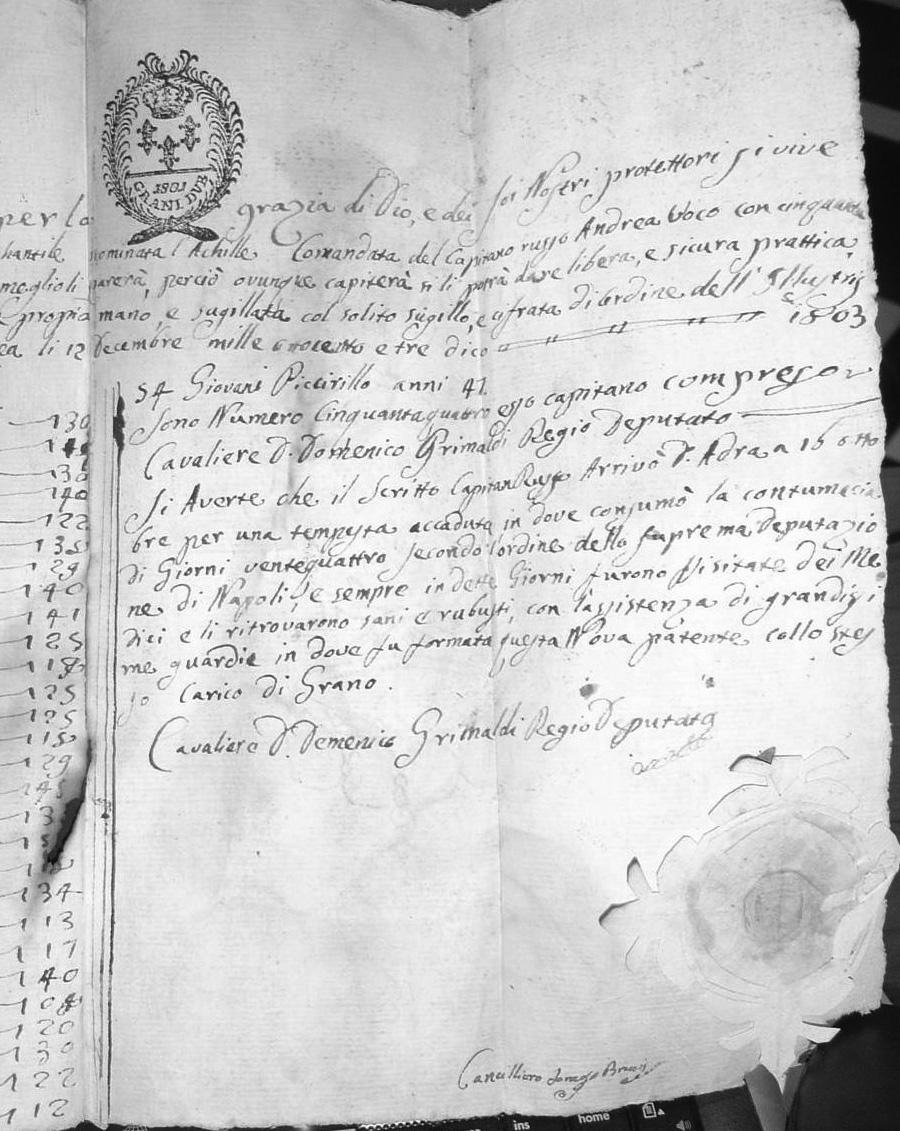 1801
GRANI DUE
per la grazia di Dio, e dei soi Nostri protettori si vive
nominata l'Achille Comandata del Capitano russo Andrea Voco con cinquanta
meglioli parerà, perciò ovunque capiterà si li potrà dare libera, e sicura prattica
e propria mano, e sugillata col solito sugillo, e cifrata di ordine dell' Illustris
li 12 Decembre mille ottocento e tre dico 1803
54 Giovani Piccirillo anni 41
Sono Numero Cinquantaquattro esso capitano compreso
Cavaliere D. Domenico Grimaldi Regio Deputato
Si Averte che il Scritto Capitan Russo Arrivò D. Adra a 16 otto
bre per una tempesta accaduta in dove consumò la contumacia
di Giorni ventequattro secondo l'ordine dello suprema Deputazio
ne di Napoli, e sempre in dette Giorni furono Visitate dei Me
dici e li ritrovarono sani e rubusti, con l'assistenza di grandissi
me guardie in dove fu formata questa Nova patente collo stes
so Carico di Grano.
Cavaliere D. Demenico Grimaldi Regio Deputato
Cancilliero
130
140
122
135
129
140
141
125
118
125
125
115
129
134
113
117
140
120
130
122
112
ins
home